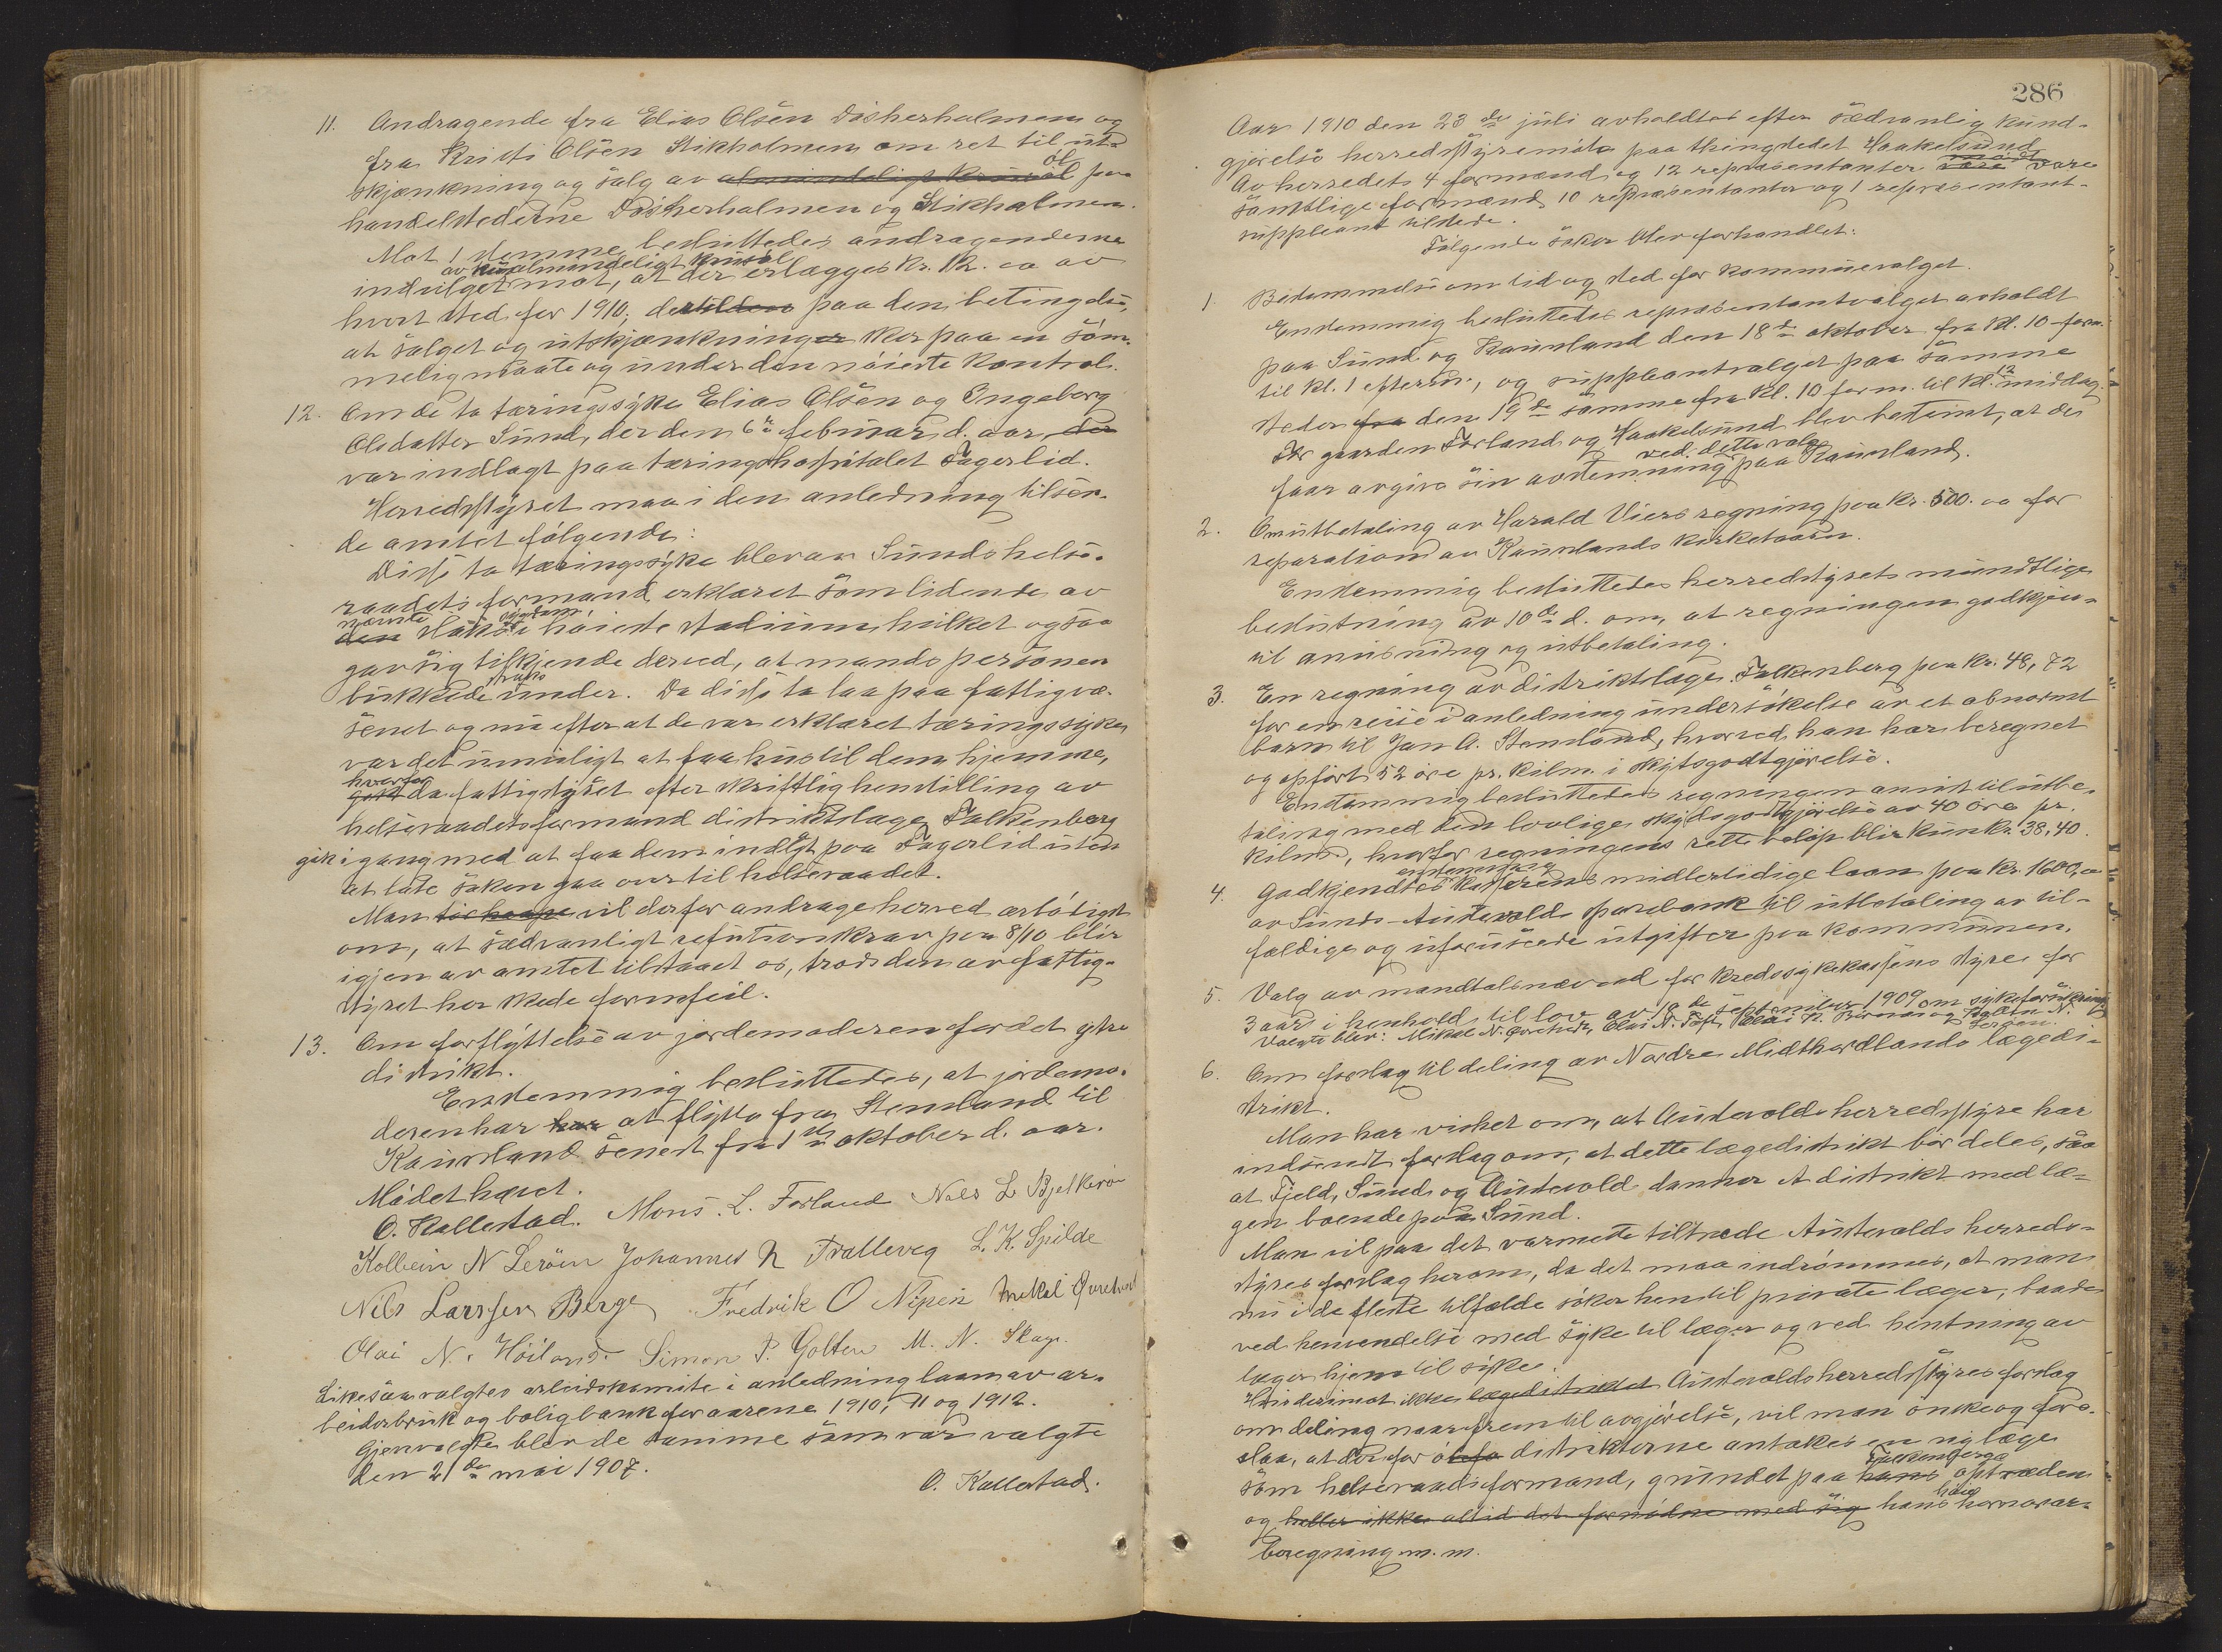 11. Andragende fra Elias Olsen Disherholmen og
fra Kristi Olsen Stikholmen om ret til ut-
skjænkning og salg av almindeligt krusøl øl paa
handelstederne Disherholmen og Stikholmen.
Mot 1 stemme besluttedes andragenderne
av almindeligt krusøl
indvilget mot, at der erlægges kr. 12.00 av
hvert sted for 1910; paa den betingelse,
at salget og utskjænkningen sker paa en søm-
melig maate og under den nøieste kontrol.
12. Om de to tæringssyke Elias Olsen og Ingeborg
Olsdatter Sund, der den 6te februar d. aar der
var indlagt paa tæringshospitalet Fagerlid.
Herredsstyret maa i den anledning tilsen-
de amtet følgende:
Disse to tæringssyke blev av Sunds helse-
raadets formand erklæret som lidende av
nævnte sygdom,
den i høieste stadium, hvilket ogsaa
gav sig tilkjende derved, at mandspersonen
straks
bukkede under. Da disse to laa paa fattigvæ-
senet og nu efter at de var erklæret tæringssyke,
var det umuligt at faa hus til dem hjemme,
hvorfor
da fattigstyret efter skriftlig henstilling av
helseraadetsformand distriktslæge Falkenberg
gik igang med at faa dem indlagt paa Fagerlid uten
at late saken gaa over til helseraadet.
Man vil derfor andrage herved ærbødigst
om, at sædvanligt refutionskrav paa 8/10 blir
igjen av amtet tilstaaet os, trods den av fattig-
styret her skede formfeil.
13. Om forflyttelse av jordemoderen for det ytre
distrikt.
Enstemmig besluttedes, at jordemo-
deren har har at flytte fra Stensland til
Kausland senest fra 1ste oktober d. aar.
Mødet hævet.
O. Kallestad. Mons. L. Forland Nils L Bjelkerøe
Kolbein N Lerøen Johannes N Trælleveg L. K. Spilde
Nils Larssen Berge Fredrik O Nipen Mikal Gjuretvedt
Olai N. Høiland. Simon P. Golten M. N. Skage.
Likesaa valgtes arbeidskomite i anledning laan av ar-
beiderbruk og boligbank for aarene 1910, 11 og 1912.
Gjenvalgte blev de samme som var valgte
den 21de mai 1907.
O. Kallestad.
286
Aar 1910 den 23de juli avholdtes efter sædvanlig kund-
gjørelse herredsstyremøte paa thingstedet Haakelsund
Av herredets 4 formænd og 12 repræsentanter møtte være
samtlige formænd 10 repræsentanter og 1 repræsentant-
suppleant tilstede.
Følgende saker blev forhandlet:
1. Bestemmelse om tid og sted for kommunevalget.
Enstemmig besluttedes repræsentantvalget avholdt
paa Sund og Kausland den 18de oktober fra kl. 10 form.
til kl. 1 efterm., og suppleantvalget paa samme
steder fra den 19de samme fra kl. 10 form. til kl. 12 middag.
For gaarden Forland og Haakelsund blev bestemt, at de
ved dette valg
faar avgive sin avstemning paa Kausland.
2. Om utbetaling av Harald Viers regning paa kr. 500.00 for
reparation av Kauslands kirketaarn.
Enstemmig besluttedes herredstyrets mundtlige
beslutning av 10de d. om, at regningen godkjen-
til anvisning og utbetaling.
3. En regning av distriktslæge Falkenberg paa kr. 48,72
for en reise i anledning undersøkelse av et abnormt
barn til Jan A. Stensland, hvorved han har beregnet
og opført 52 øre pr. kilm. i skytsgodtgjørelse.
Enstemmig besluttedes regningen anvist til utbe-
taling med den lovlige skydsgodtgjørelse av 40 øre pr.
kilm., hvorfor regningens rette beløp blir kun kr. 38,40.
4. enstemmig
Godkjendtes kasserens midlertidige laan paa kr. 1600,00
av Sunds-Austevolds sparebank til utbetaling av til-
fældige og uforutseede utgifter paa kommunen.
5. Valg av mandtalsnævnd for kredssykekassens styre for
3 aar i henhold til lov av 18de september 1909 om sykeforsikring.
Valgte blev: Mikal N. Gjuretvedt, Olai N. Toft, Olai N. og Kolbein N.
Lerøen.
6. Om forslag til deling av Nordre Midthordlands lægedi-
strikt.
Man har vished om, at Austevolds herredsstyre har
indsendt forslag om, at dette lægedistrikt bør deles, saa
at Fjeld, Sund og Austevold danner et distrikt med læ-
gen boende paa Sund.
Man vil paa det varmeste tiltræde Austevolds herreds-
styres forslag herom, da det maa indrømmes, at man
nu i de fleste tilfælde søker hen til private læger, baade
ved henvendelse med syke til læger og ved hentning av
læger hjem til syke.
Hvis derimot ikke lægedistriktet Austevolds herredsstyres forslag
om deling naar frem til avgjørelse, vil man ønske og fore-
slaa, at der for distrikterne antakes en ny læge
Falkenbergs
som helseraadsformand, grundet paa hans optræden
høie
og heller ikke altid det fornødne med sig hans honorar-
beregning m. m.